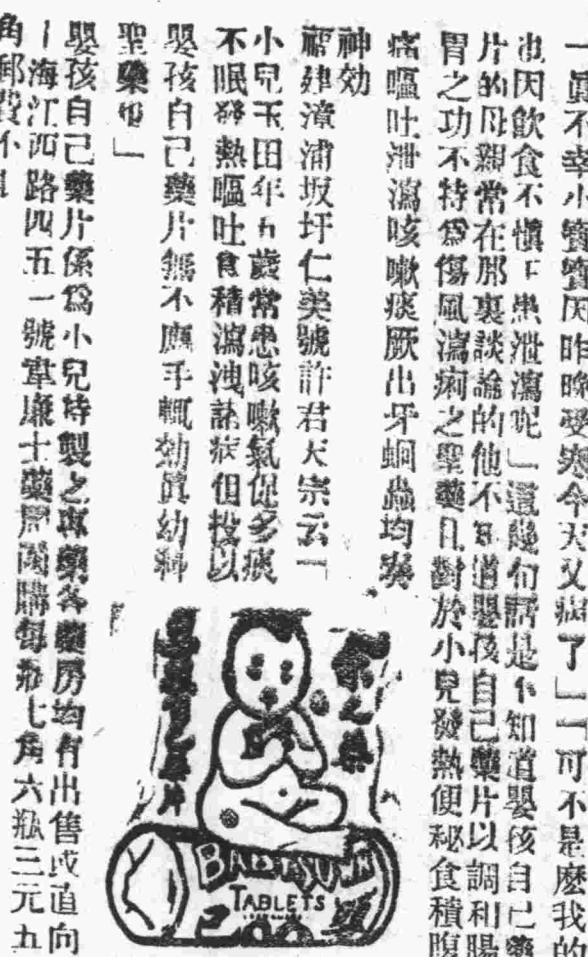 一眞不幸小寶寶因昨晚受寒今天又病了」「可不是麽我的
也因飮食不愼正患泄瀉呢」這幾句話是不知道嬰孩自己藥
片的母親常在那裏談論的他不知道嬰孩自己藥片以調和腸
胃之功不特爲傷風瀉痢之聖藥且對於小兒發熱便秘食積腹
痛嘔吐泄瀉咳嗽痰厥出牙蛔蟲均奏
神効
福建漳浦坂圩仁美號許君天宗云「
小兒玉田年五歲常患咳嗽氣促多痰
不眠發熱嘔吐食積瀉洩諸病但投以
嬰孩自己藥片無不應手輒効眞幼科
聖藥也」
嬰孩自己藥片係爲小兒特製之專藥各藥房均有出售或直向
上海江西路四五一號韋廉士藥局函購每瓶七角六瓶三元五
角郵費不
嬰孩自己藥片
BABY'S OWN
TABLETS
己